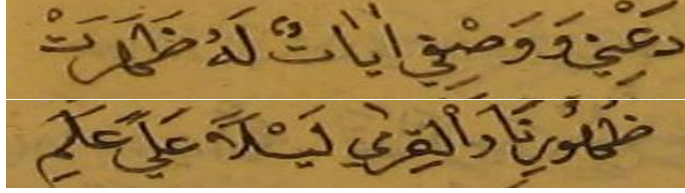 دَعْنِي وَوَصْفِي اٰيَاتٌ لَهُ ظَهَرَتْ
ظُهُورِنَا رَالْقِرٰي لَيْلًا عَلَي عَلَمِ